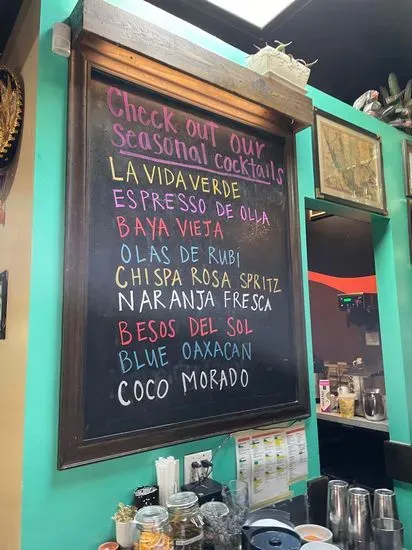 Check out our
seasonal cocktails
LA VIDA VERDE
ESPRESSO DE OLLA
BAYA VIEJA
OLAS DE RUBI
CHISPA ROSA SPRITZ
NARANJA FRESCA
BESOS DEL SOL
BLUE OAXACAN
COCO MORADO